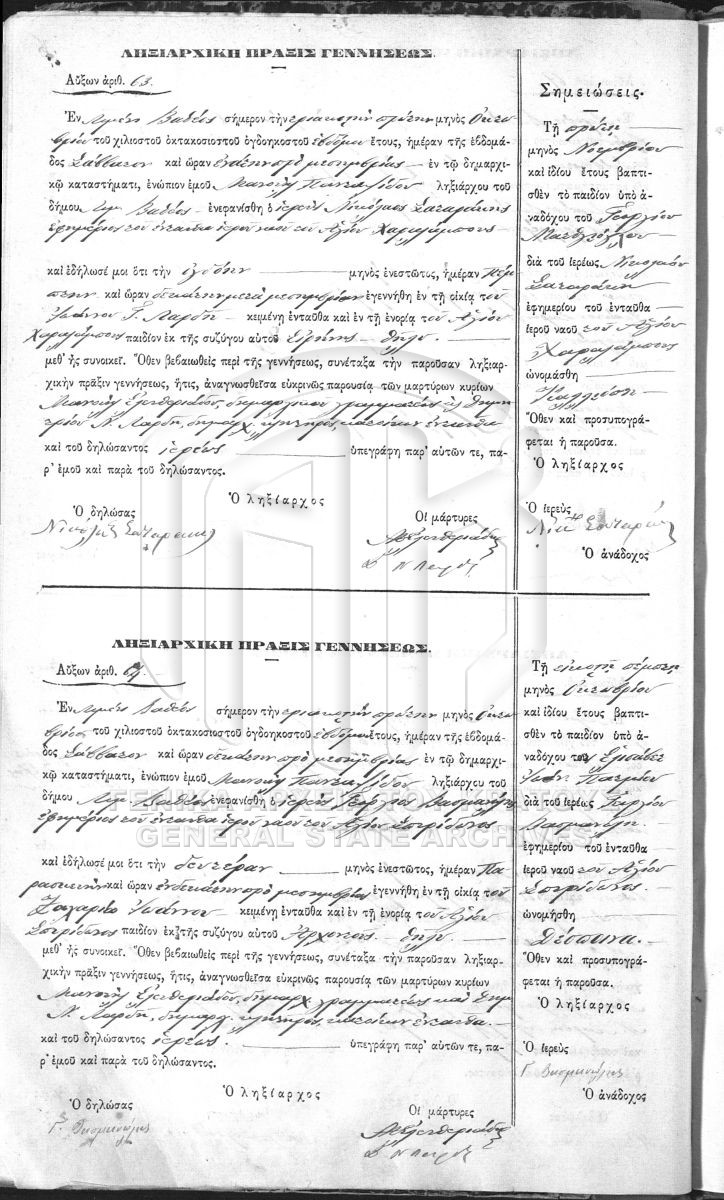 ΛΗΞΙΑΡΧΙΚΗ ΠΡΑΞΙΣ ΓΕΝΝΗΣΕΩΣ.
Αὔξων ἀριθ. 63.
Ἐν Λιμένι Βαθέος σήμερον τὴν τριακοστὴν πρώτην μηνὸς Ὀκτω
βρίου τοῦ χιλιοστοῦ ὀκτακοσιοστοῦ ὀγδοηκοστοῦ ἑβδόμου ἔτους, ἡμέραν τῆς ἑβδομά
δος Σάββατον καὶ ὥραν ἐνάτην πρὸ μεσημβρίας ἐν τῷ δημαρχι
κῷ καταστήματι, ἐνώπιον ἐμοῦ Μανουὴλ ληξιάρχου τοῦ
δήμου Λιμ. Βαθέος ἐνεφανίσθη ὁ ἱερεὺς Νικόλαος Σακαράκης
ἐφημέριος τοῦ ἐνταῦθα ἱεροῦ ναοῦ τοῦ Ἁγίου Χαραλάμπους
καὶ ἐδήλωσέ μοι ὅτι τὴν ὀγδόην μηνὸς ἐνεστῶτος, ἡμέραν Πέμ
πτην καὶ ὥραν δεκάτην μετὰ μεσημβρίαν ἐγεννήθη ἐν τῇ οἰκίᾳ τοῦ
Ἰωάννου Γ. Λαρδῆ κειμένῃ ἐνταῦθα καὶ ἐν τῇ ἐνορίᾳ τοῦ Ἁγίου
Χαραλάμπους παιδίον ἐκ τῆς συζύγου αὐτοῦ Εἰρήνης θῆλυ.
μεθ' ἧς συνοικεῖ. Ὅθεν βεβαιωθεὶς περὶ τῆς γεννήσεως, συνέταξα τὴν παροῦσαν ληξιαρ-
χικὴν πρᾶξιν γεννήσεως, ἥτις, ἀναγνωσθεῖσα εὐκρινῶς παρουσίᾳ τῶν μαρτύρων κυρίων
Μανουὴλ Ἐλευθεριάδου, δημαρχικοῦ γραμματέως καὶ Δημη
τρίου Ν. Λαρδῆ, δημαρχ. κλητῆρος, κατοίκων ἐνταῦθα
καὶ τοῦ δηλώσαντος ἱερέως ὑπεγράφη παρ' αὐτῶν τε, πα-
ρ' ἐμοῦ καὶ παρὰ τοῦ δηλώσαντος.
Ὁ ληξίαρχος
Ὁ δηλώσας
Οἱ μάρτυρες
Σημειώσεις.
Τῇ πρώτῃ
μηνὸς Νοεμβρίου
καὶ ἰδίου ἔτους βαπτι-
σθὲν τὸ παιδίον ὑπὸ ἀ-
ναδόχου τοῦ Γεωργίου
διὰ τοῦ ἱερέως Νικολάου
ἐφημερίου τοῦ ἐνταῦθα
ἱεροῦ ναοῦ τοῦ Ἁγίου
Χαραλάμπους
ὠνομάσθη
Καλλιόπη
Ὅθεν καὶ προσυπογρά-
φεται ἡ παροῦσα.
Ὁ ληξίαρχος
Ὁ ἱερεὺς
Ὁ ἀνάδοχος
ΛΗΞΙΑΡΧΙΚΗ ΠΡΑΞΙΣ ΓΕΝΝΗΣΕΩΣ.
Αὔξων ἀριθ. 64.
Ἐν Λιμένι Βαθέος σήμερον τὴν τριακοστὴν πρώτην μηνὸς Ὀκτω
βρίου τοῦ χιλιοστοῦ ὀκτακοσιοστοῦ ὀγδοηκοστοῦ ἑβδόμου ἔτους, ἡμέραν τῆς ἑβδομά-
δος Σάββατον καὶ ὥραν δεκάτην πρὸ μεσημβρίας ἐν τῷ δημαρχι-
κῷ καταστήματι, ἐνώπιον ἐμοῦ Μανουὴλ ληξιάρχου τοῦ
δήμου Λιμ. Βαθέος ἐνεφανίσθη ὁ ἱερεὺς Γεώργιος
ἐφημέριος τοῦ ἐνταῦθα ἱεροῦ ναοῦ τοῦ Ἁγίου Σπυρίδωνος
καὶ ἐδήλωσέ μοι ὅτι τὴν δευτέραν μηνὸς ἐνεστῶτος, ἡμέραν Πα
ρασκευὴν καὶ ὥραν ἑνδεκάτην πρὸ μεσημβρίας ἐγεννήθη ἐν τῇ οἰκίᾳ τοῦ
Ζαχαρίου Ἰωάννου κειμένῃ ἐνταῦθα καὶ ἐν τῇ ἐνορίᾳ τοῦ Ἁγίου
Σπυρίδωνος παιδίον ἐκ τῆς συζύγου αὐτοῦ Ἀρχοντῶς θῆλυ.
μεθ' ἧς συνοικεῖ. Ὅθεν βεβαιωθεὶς περὶ τῆς γεννήσεως, συνέταξα τὴν παροῦσαν ληξιαρ-
χικὴν πρᾶξιν γεννήσεως, ἥτις, ἀναγνωσθεῖσα εὐκρινῶς παρουσίᾳ τῶν μαρτύρων κυρίων
Μανουὴλ Ἐλευθεριάδου, δημαρχ. γραμματέως καὶ Δημ.
Ν. Λαρδῆ, δημαρχ. κλητῆρος, κατοίκων ἐνταῦθα.
καὶ τοῦ δηλώσαντος ἱερέως. ὑπεγράφη παρ' αὐτῶν τε, πα-
ρ' ἐμοῦ καὶ παρὰ τοῦ δηλώσαντος.
Ὁ ληξίαρχος
Ὁ δηλώσας
Οἱ μάρτυρες
Τῇ εἰκοστῇ πέμπτῃ
μηνὸς Ὀκτωβρίου
καὶ ἰδίου ἔτους βαπτι-
σθὲν τὸ παιδίον ὑπὸ ἀ-
ναδόχου
διὰ τοῦ ἱερέως Γεωργίου
ἐφημερίου τοῦ ἐνταῦθα
ἱεροῦ ναοῦ τοῦ Ἁγίου
Σπυρίδωνος
ὠνομήσθη
Δέσποινα.
Ὅθεν καὶ προσυπογρά-
φεται ἡ παροῦσα.
Ὁ ληξίαρχος
Ὁ ἱερεὺς
Ὁ ἀνάδοχος
ΓΕΝΙΚΑ ΑΡΧΕΙΑ ΤΟΥ ΚΡΑΤΟΥΣ
GENERAL STATE ARCHIVES